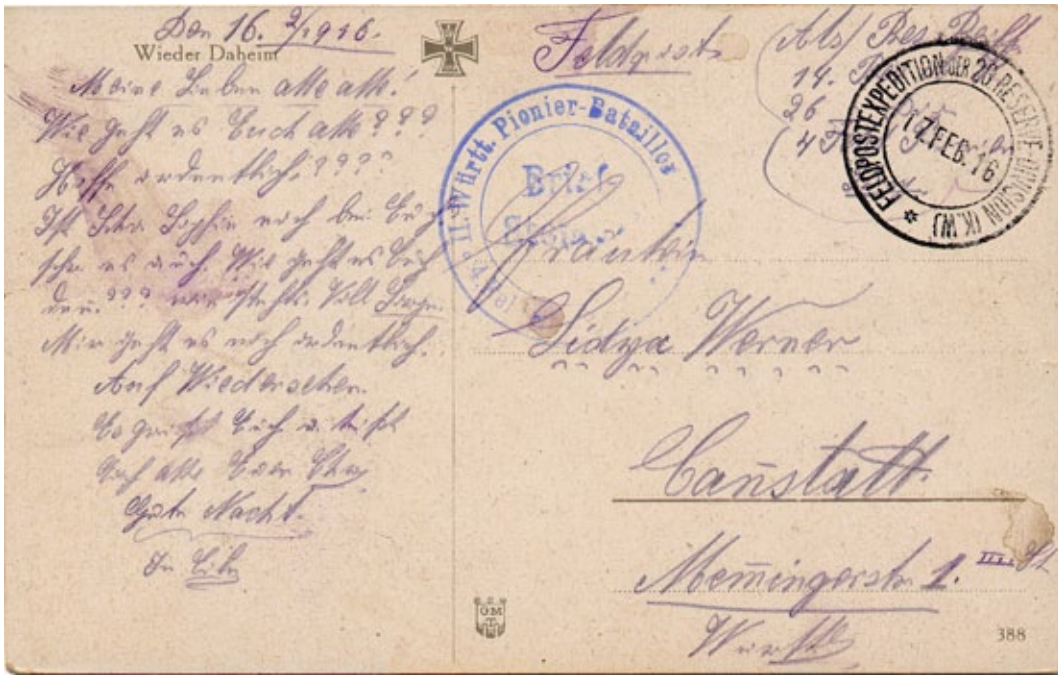 Den 16. 2/1916.
Wieder Daheim
Meine Lieben alle alle!
Wie geht es Euch alle???
Hoffe ordentlich????
Ist noch bei Euch
es auch. Wie geht es Euch
den??? wie steht's Voll Sorgen
Mir geht es noch ordentlich.
Auf Wiedersehen.
Es grüßt Euch u. küßt
Euch alle Euer
Gute Nacht.
In Liebe
Feldpost
14.
26
FELDPOSTEXPEDITION DER 26. RESERVE-DIVISION (K.W.)
17. FEB. 16
II. Württ. Pionier-Bataillon
Brief
Fräulein
Lidya Werner
Canstatt.
Memingerstr. 1. III. St
Württbg
GM
388